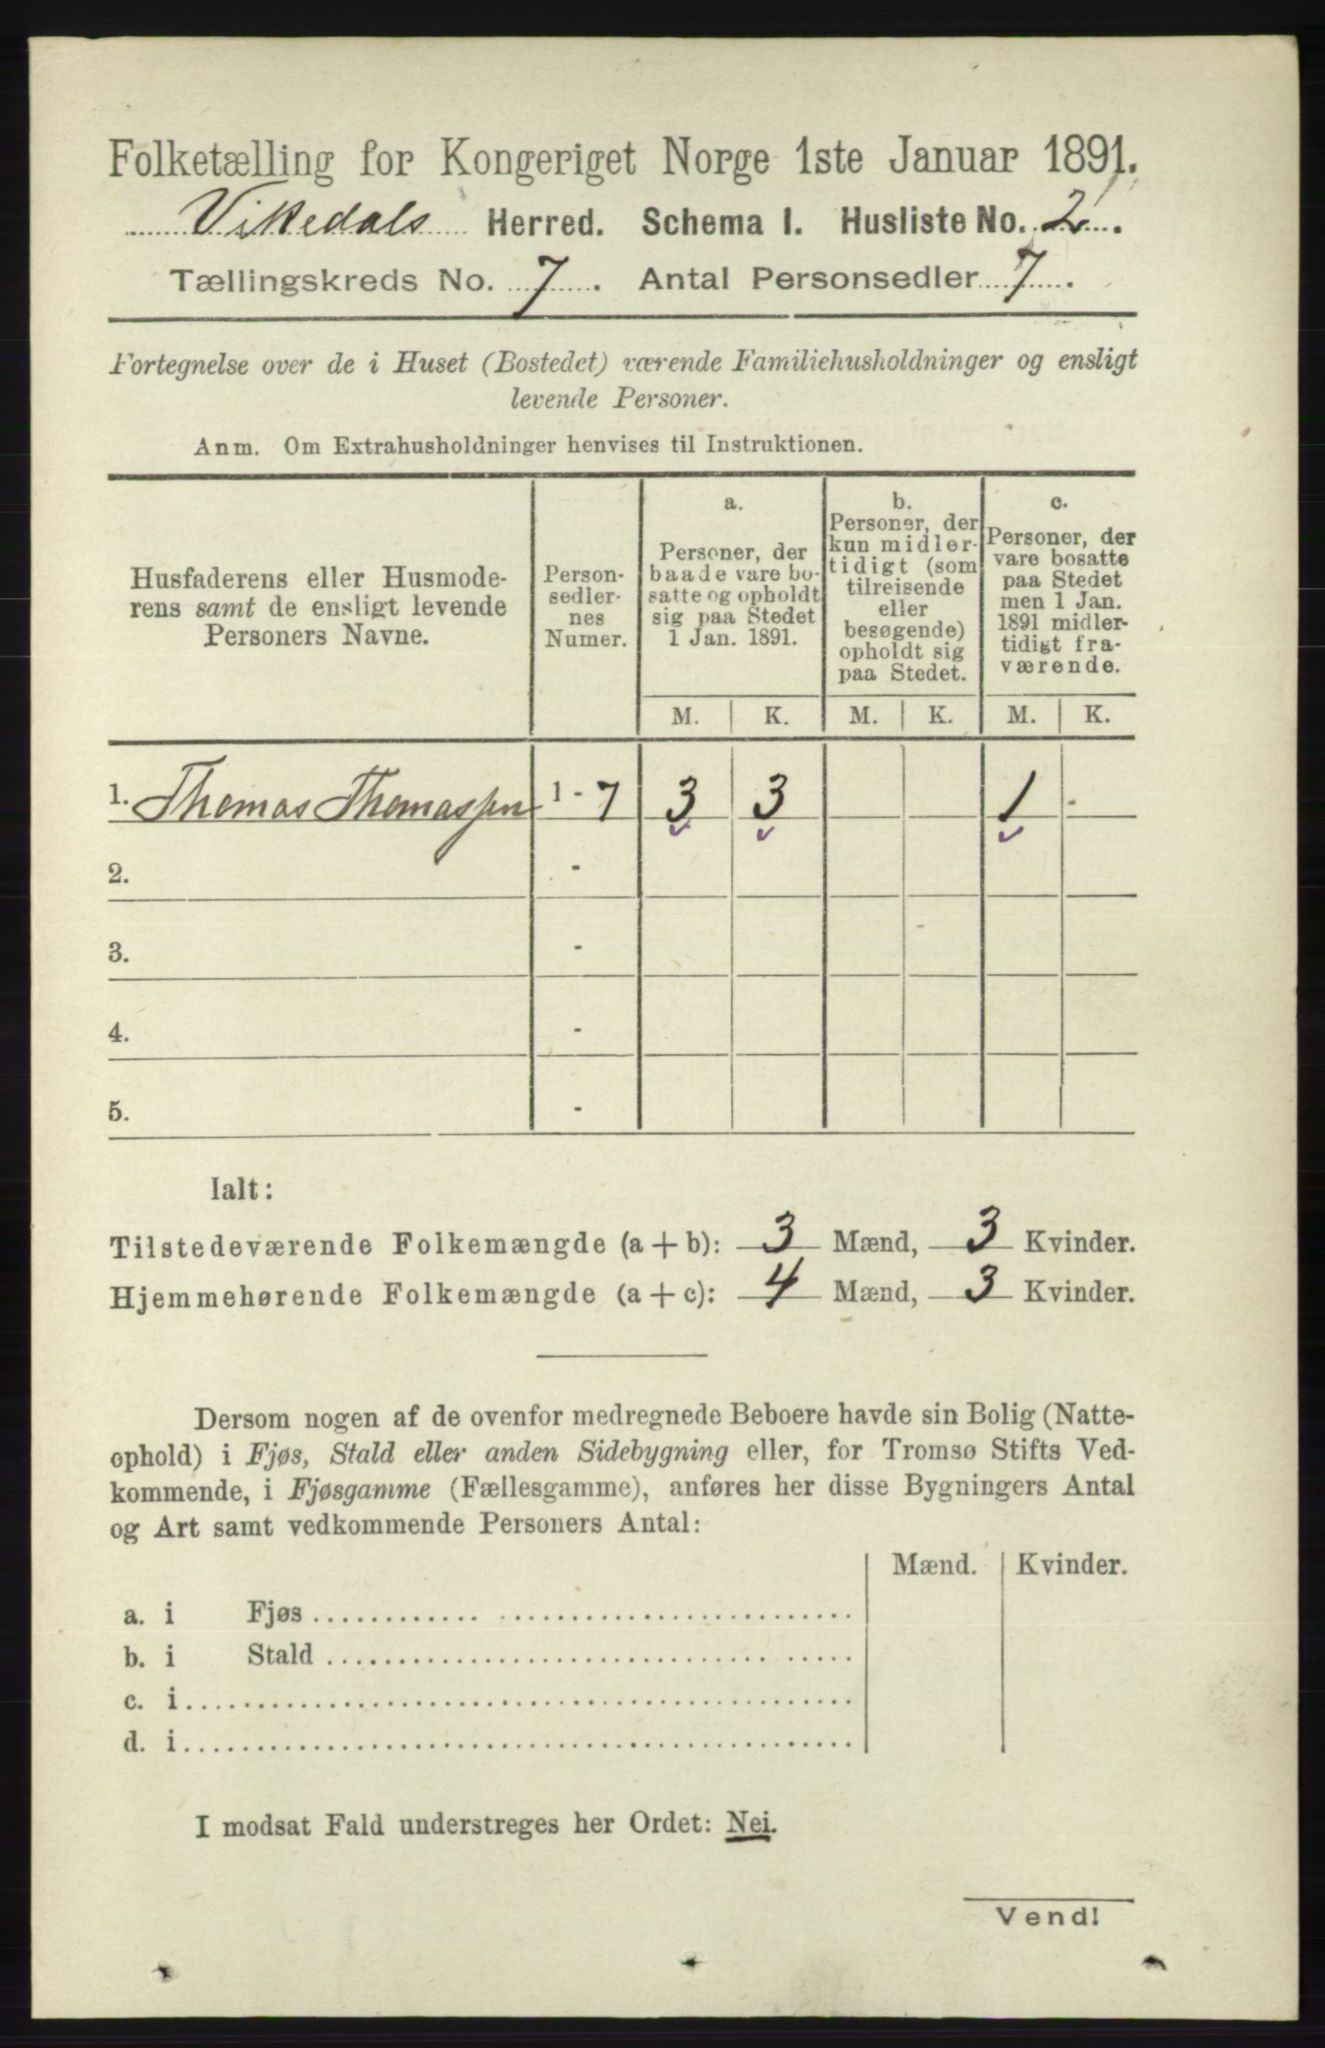 Folketælling for Kongeriget Norge 1ste Januar 1891.
Vikedals Herred. Schema I. Husliste No. 2.
Tællingskreds No. 7. Antal Personsedler 7.
Fortegnelse over de i Huset (Bostedet) værende Familiehusholdninger og ensligt
levende Personer.
Anm. Om Extrahusholdninger henvises til Instruktionen.
Husfaderens eller Husmode-
rens samt de ensligt levende
Personers Navne.
Person-
sedler-
nes
Numer.
a.
Personer, der
baade vare bo-
satte og opholdt
sig paa Stedet
1 Jan. 1891.
b.
Personer, der
kun midler-
tidigt (som
tilreisende
eller
besøgende)
opholdt sig
paa Stedet.
c.
Personer, der
vare bosatte
paa Stedet
men 1 Jan.
1891 midler-
tidigt fra-
værende.
M. K. M. K. M. K.
1. Thomas Thomassen 1 - 7 3 3 1 -
2. -
3. -
4. -
5. -
Ialt:
Tilstedeværende Folkemængde (a + b): 3 Mænd, 3 Kvinder.
Hjemmehørende Folkemængde (a + c): 4 Mænd, 3 Kvinder.
Dersom nogen af de ovenfor medregnede Beboere havde sin Bolig (Natte-
ophold) i Fjøs, Stald eller anden Sidebygning eller, for Tromsø Stifts Ved-
kommende, i Fjøsgamme (Fællesgamme), anføres her disse Bygningers Antal
og Art samt vedkommende Personers Antal:
Mænd. Kvinder.
a. i Fjøs
b. i Stald
c. i
d. i
I modsat Fald understreges her Ordet: Nei.
Vend!